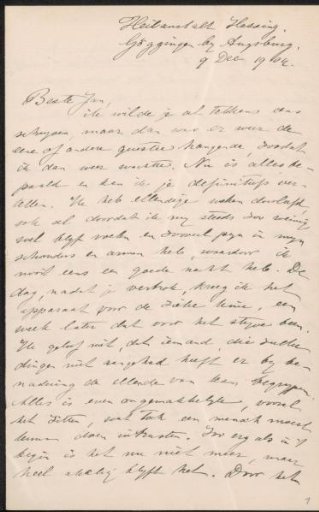 Heilanstalt Hessing
Göggingen by Augsburg.
9 Dec 19
Beste Jan,
ik wilde je al telkens eens
schryven, maar dan was er weer de
eene of andere questie hangende, zoodat
ik dan weer wachtte. Nu is alles be-
paald en kan ik je definitiefs ver-
tellen. Ik heb ellendige weken doorleefd
ook al doordat ik my steeds zoo weinig
wel blyf voelen en zooveel pyn in myn
schouders en armen heb, waardoor ik
nooit eens een goede nacht heb. De
dag, nadat je vertrok, kreeg ik het
apparaat voor de zieke knie, een
week later dat voor het styve been.
Ik geloof niet, dat iemand, die zulke
dingen niet aangehad heeft er by be-
nadering de ellende van kan begrypen.
Alles is even ongemakkelyk, vooral
het zitten, wat toch een mensch moest
kunnen doen uitrusten. Zoo erg als in 't
begin is het nu niet meer, maar
heel akelig blyft het. Door het